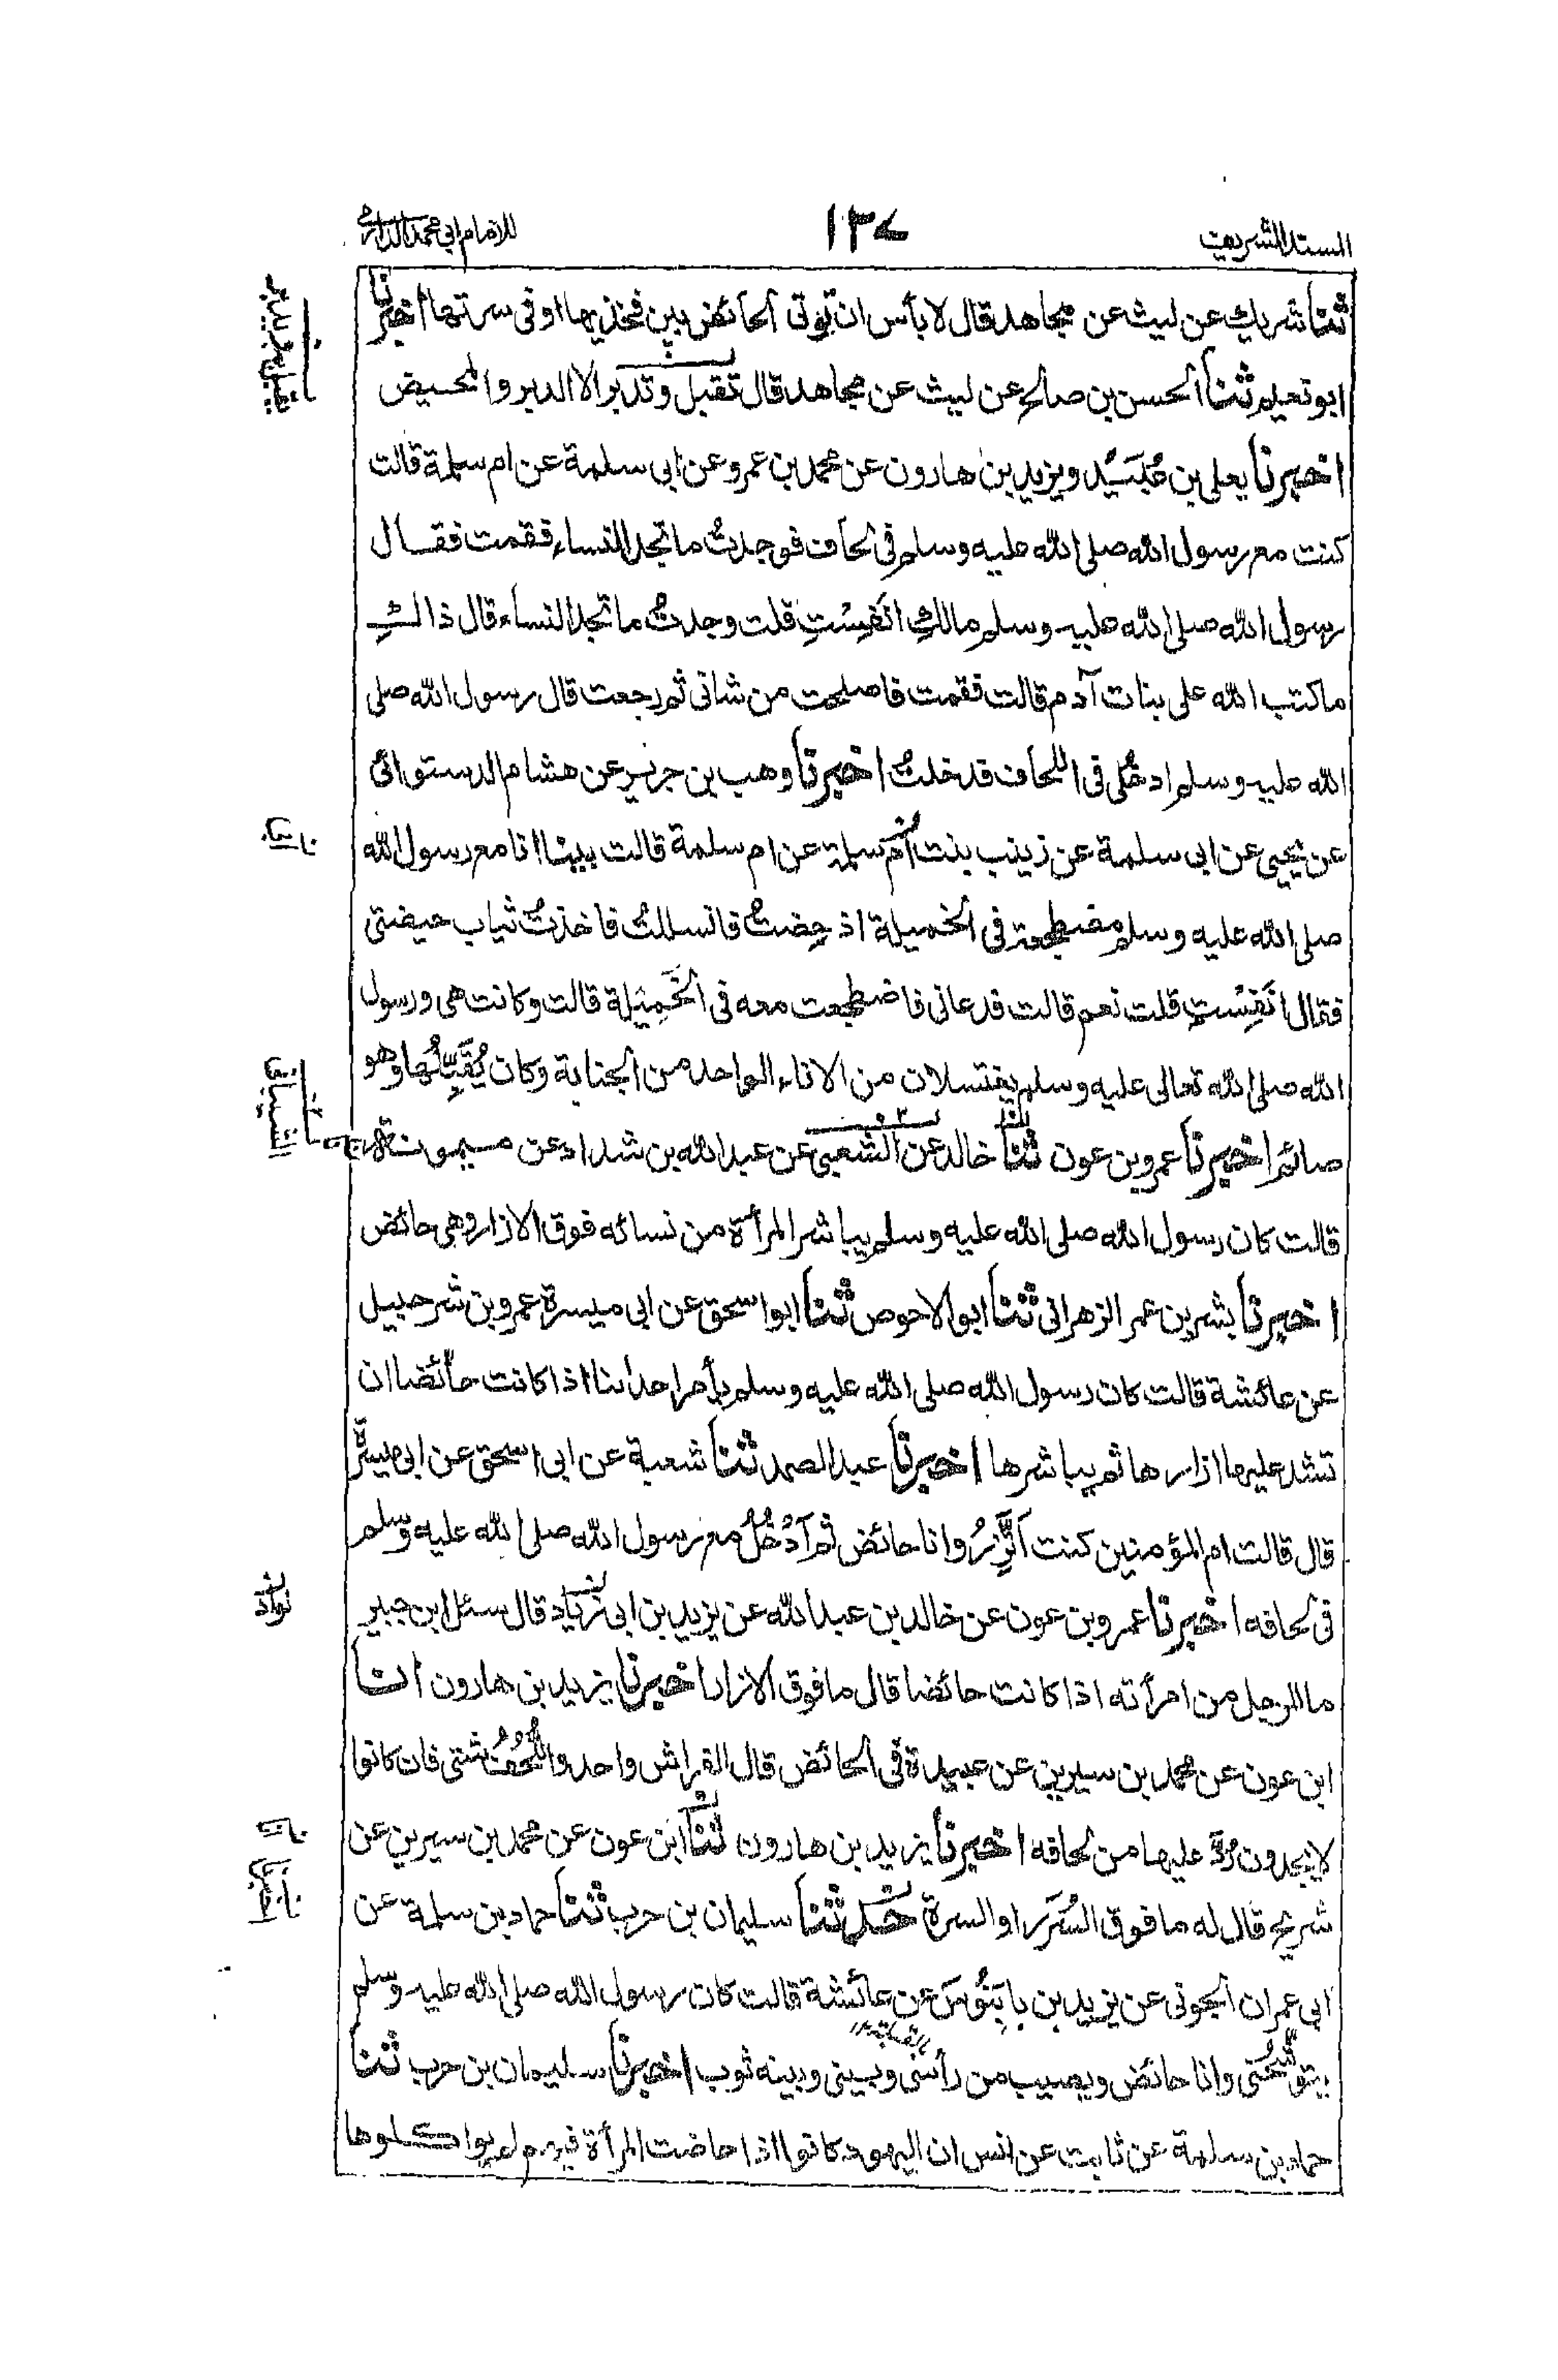 المسند الشريف ١٣٧ للامام ابي محمد الدارمي
ثنا شريك عن ليث عن مجاهد قال لا بأس ان تؤتى الحائض بين فخذيها او فى سرتها اخبرنا
ابو نعيم ثنا الحسن بن صالح عن ليث عن مجاهد قال تقبل وتدبر الا الدبر والمحيض
اخبرنا يعلى بن عُبَيد ويزيد بن هارون عن محمد بن عمرو عن ابى سلمة عن ام سلمة قالت
كنت مع رسول الله صلى الله عليه وسلم فى لحاف فوجدتُ ما تجد النساء فقمت فقال
رسول الله صلى الله عليه وسلم مالكِ انَفِسْتِ قلت وجدتُ ما تجد النساء قال ذالكِ
ما كتب الله على بنات آدم قالت فقمت فاصلحت من شانى ثم رجعت قال رسول الله صلى
الله عليه وسلم ادخُلى فى اللحاف فدخلتُ اخبرنا وهب بن جرير عن هشام الدستوائى
عن يحيى عن ابى سلمة عن زينب بنت ام سلمة عن ام سلمة قالت بينا انا مع رسول الله
صلى الله عليه وسلم مضطجعة فى الخميلة اذ حِضتُ فانسللتُ فاخذتُ ثياب حيضتى
فقال انَفِسْتِ قلت نعم قالت فدعانى فاضطجعت معه فى الخَمِيْلة قالت وكانت هى ورسول
الله صلى الله تعالى عليه وسلم يغتسلان من الاناء الواحد من الجنابة وكان يُقَبِّلُها وهو
صائم اخبرنا عمرو بن عون ثنا خالد عن الشعبى عن عبد الله بن شداد عن ميمونة
الشيبانى
قالت كان رسول الله صلى الله عليه وسلم يباشر المرأة من نسائه فوق الازار وهى حائض
اخبرنا بشر بن عمر الزهرانى ثنا ابو الاحوص ثنا ابو اسحق عن ابى ميسرة عمرو بن شرحبيل
عن عائشة قالت كان رسول الله صلى الله عليه وسلم يأمر احدانا اذا كانت حائضا ان
تشد عليها ازارها ثم يباشرها اخبرنا عبد الصمد ثنا شعبة عن ابى اسحق عن ابى ميسرة
قال قالت ام المؤمنين كنت اَتَّزِرُ وانا حائض ثم اَدْخُلُ مع رسول الله صلى الله عليه وسلم
فى لحافه اخبرنا عمرو بن عون عن خالد بن عبد الله عن يزيد بن ابى زياد قال سئل ابن جبير
ما للرجل من امرأته اذا كانت حائضا قال ما فوق الازار اخبرنا يزيد بن هارون انا
ابن عون عن محمد بن سيرين عن عبيدة فى الحائض قال الفراش واحد واللُّحُفُ شتى فان كانوا
لا يجدون رُدَّ عليها من لحافه اخبرنا يزيد بن هارون ثنا ابن عون عن محمد بن سيرين عن
شريح قال له ما فوق السُّرَر او السرة حدثنا سليمان بن حرب ثنا حماد بن سلمة عن
ابى عمران الجونى عن يزيد بن بابَنُوسَ عن عائشة قالت كان رسول الله صلى الله عليه وسلم
يتوشحنى وانا حائض ويصيب من رأسى وبينى وبينه ثوب اخبرنا سليمان بن حرب ثنا
حماد بن سلمة عن ثابت عن انس ان اليهود كانوا اذا حاضت المرأة فيهم لم يواكلوها